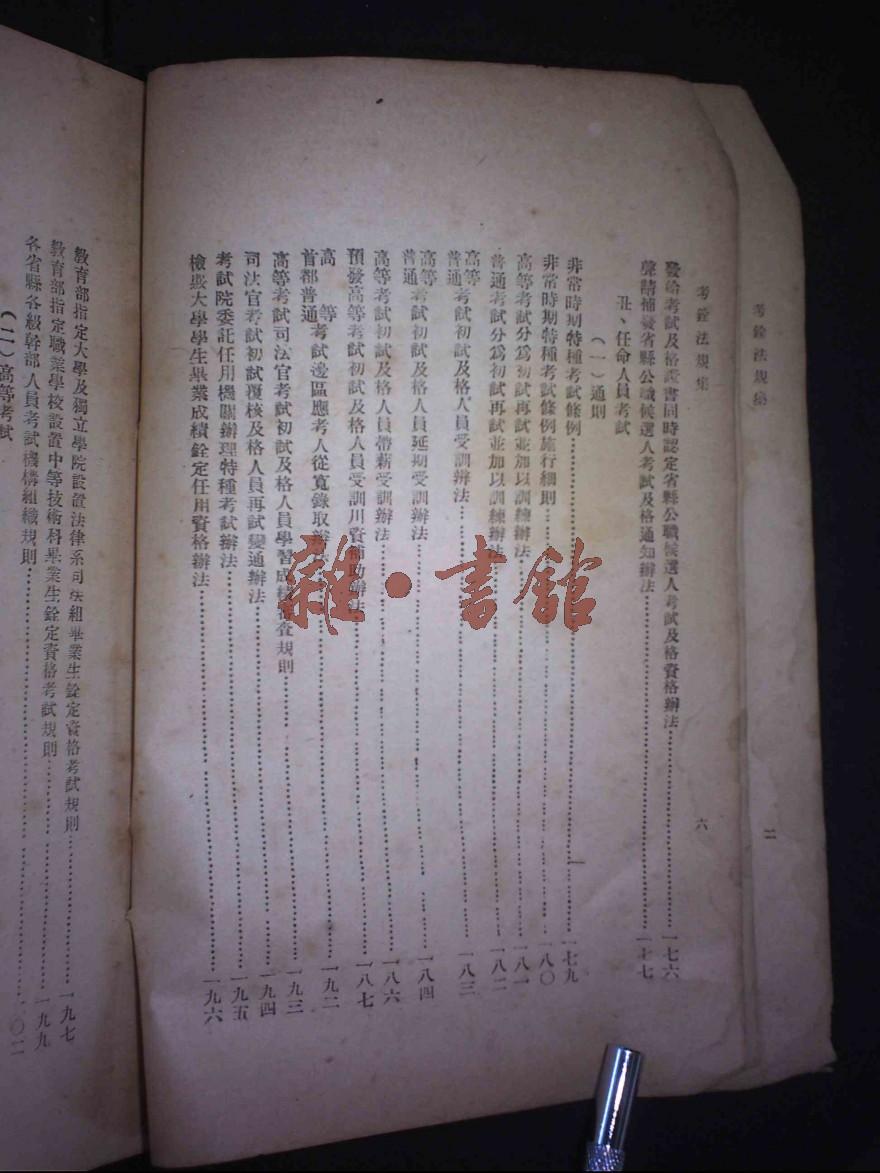 考銓法規集
二
考銓法規集
六
發給考試及格證書同時認定省縣公職候選人考試及格資格辦法 一七六
聲請補發省縣公職候選人考試及格通知辦法 一七七
丑、任命人員考試
（一）通則
非常時期特種考試條例 一七九
非常時期特種考試條例施行細則 一八〇
高等考試分爲初試再試並加以訓練辦法 一八一
普通考試分爲初試再試並加以訓練辦法 一八二
高等普通考試初試及格人員受訓辦法 一八三
高等普通考試初試及格人員延期受訓辦法 一八四
高等考試初試及格人員帶薪受訓辦法 一八六
預發高等考試初試及格人員受訓川資補助辦法 一八七
高等首都普通考試邊區應考人從寬錄取辦法 一九二
高等考試司法官考試初試及格人員學習成績審查規則 一九三
司法官考試初試覆核及格人員再試變通辦法 一九四
考試院委託任用機關辦理特種考試辦法 一九五
檢覈大學學生畢業成績銓定任用資格辦法 一九六
教育部指定大學及獨立學院設置法律系司法組畢業生銓定資格考試規則 一九七
教育部指定職業學校設置中等技術科畢業生銓定資格考試規則 一九九
各省縣各級幹部人員考試機構組織規則 二〇二
（二）高等考試
雜·書館